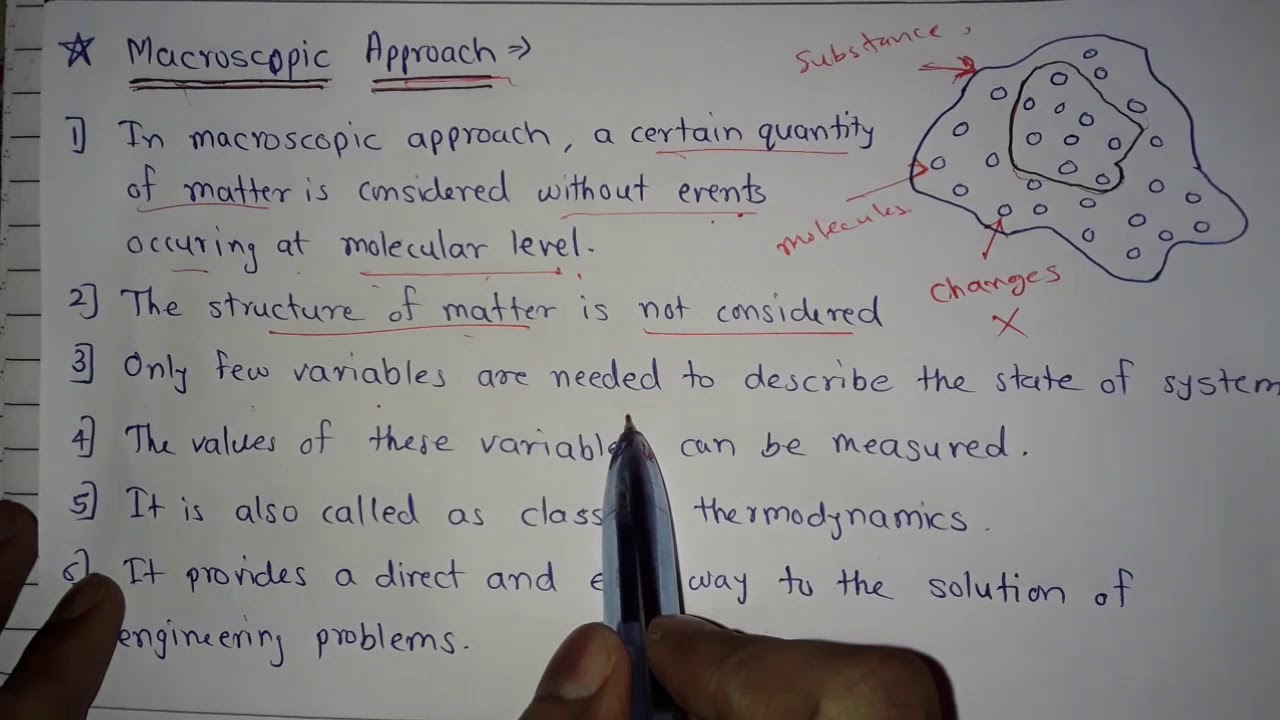 ☆ Macroscopic Approach ⇒
Substance,
1] In macroscopic approach, a certain quantity
of matter is considered without events
occuring at molecular level.
molecules
changes
X
2] The structure of matter is not considered
3] Only few variables are needed to describe the state of system
4] The values of these variable can be measured.
5] It is also called as class thermodynamics.
6] It provides a direct and way to the solution of
engineering problems.